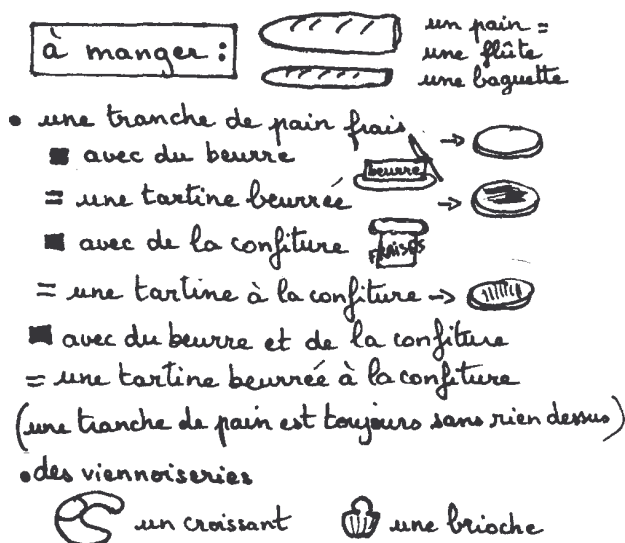 à manger :
un pain =
une flûte
une baguette
• une tranche de pain frais →
■ avec du beurre
beurre
= une tartine beurrée →
■ avec de la confiture
FRAISES
= une tartine à la confiture →
■ avec du beurre et de la confiture
= une tartine beurrée à la confiture
(une tranche de pain est toujours sans rien dessus)
• des viennoiseries
un croissant
une brioche